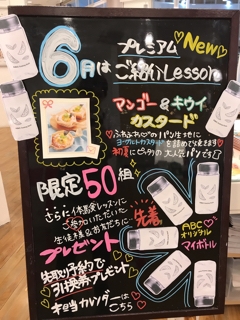 6月は
プレミアム New
ご紹介Lesson
マンゴー&キウイ
カスタード
ふわふわの パン生地に
ヨーグルトカスタードを詰めて焼きます
初夏にピッタリの大人気パンです
限定50組
さらに1本買レッスンに
ご参加いただいた
生徒様&お友だちに
先着
プレゼント
ABC
オリジナル
マイボトル
先取り予約で
引換券プレゼント
お申込カレンダーは
こちら